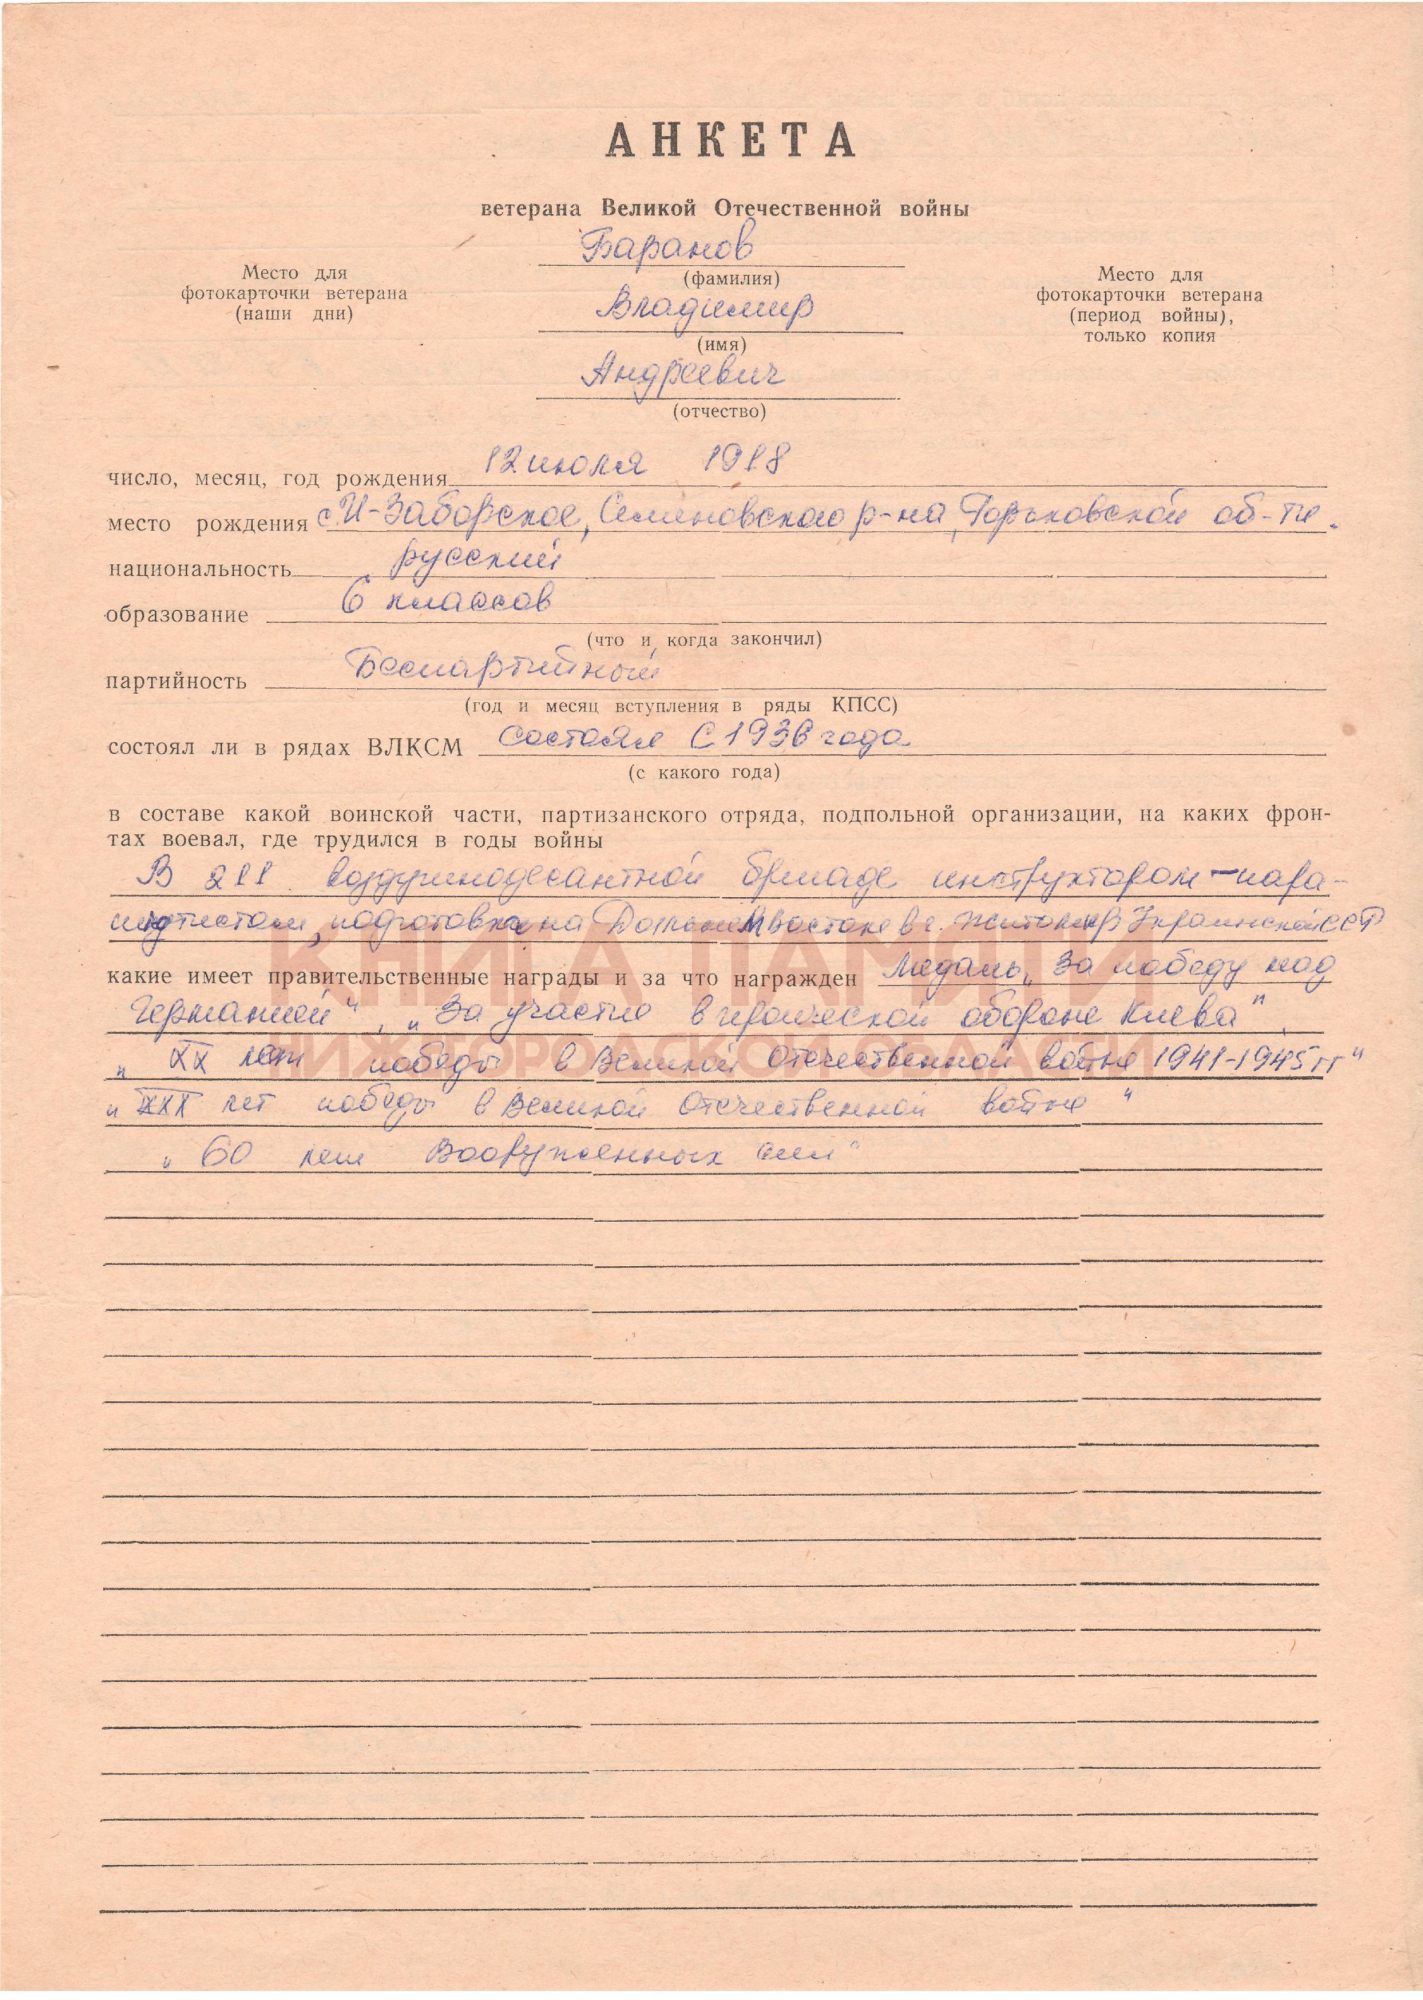 АНКЕТА
ветерана Великой Отечественной войны
Баранов
(фамилия)
Место для фотокарточки ветерана (наши дни)
Место для фотокарточки ветерана (период войны), только копия
Владимир
(имя)
Андреевич
(отчество)
число, месяц, год рождения 12 июля 1918
место рождения с. И-Заборское, Семеновского р-на, Горьковской об-ти.
национальность русский
образование 6 классов
(что и когда закончил)
партийность Беспартийный
(год и месяц вступления в ряды КПСС)
состоял ли в рядах ВЛКСМ состоял с 1936 года
(с какого года)
в составе какой воинской части, партизанского отряда, подпольной организации, на каких фрон-
тах воевал, где трудился в годы войны
В 211 воздушнодесантной бригаде инструктором-пара-
шютистом, подготовка на Дальнем Востоке в г. Житомир Украинской ССР
какие имеет правительственные награды и за что награжден Медаль „За победу над
Германией“, „За участие в героической обороне Киева“,
„XX лет победы в Великой Отечественной войне 1941-1945 гг“
„XXX лет победы в Великой Отечественной войне“
„60 лет Вооруженных сил“
КНИГА ПАМЯТИ
НИЖЕГОРОДСКОЙ ОБЛАСТИ